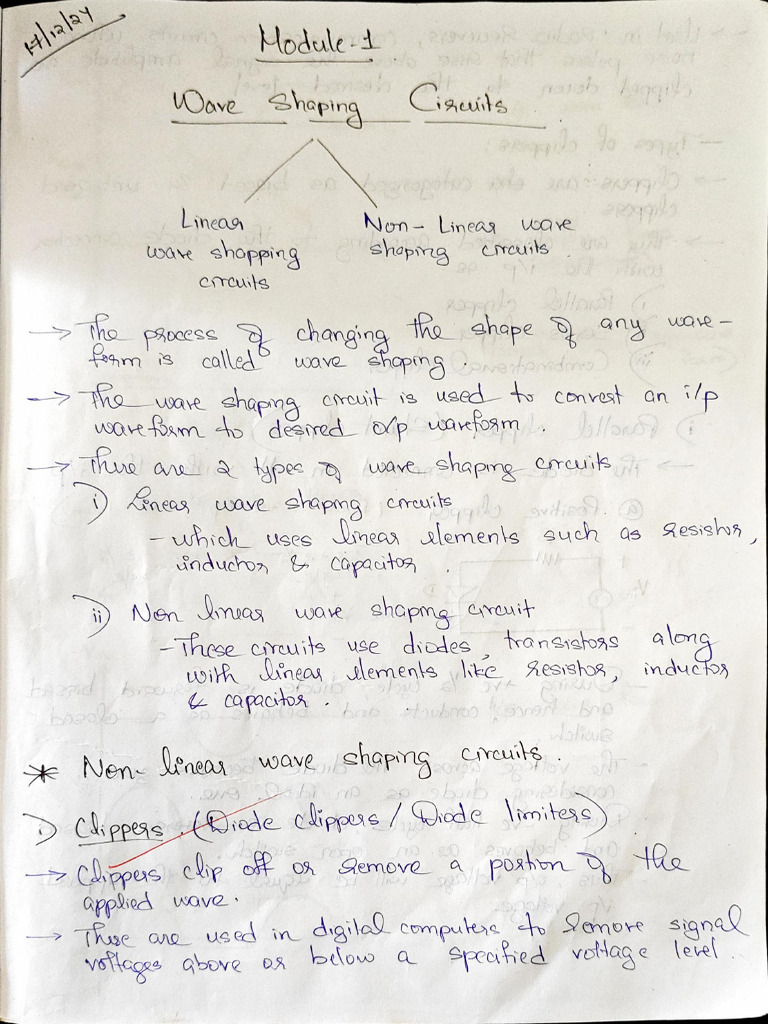 17/12/24
Module-1
Wave Shaping Circuits
Linear
wave shopping
circuits
Non-Linear wave
shaping circuits.
→ The process of changing the shape of any wave-
form is called wave shaping
→ The wave shaping circuit is used to convert an i/p
waveform to desired o/p waveform.
→ There are 2 types of wave shaping circuits
i) Linear wave shaping circuits
- which uses linear elements such as resistor,
inductor & capacitor.
ii) Non linear wave shaping circuit
- These circuits use diodes, transistors along
with linear elements like resistor, inductor
& capacitor.
* Non-linear wave shaping circuits.
i) Clippers (Diode clippers / Diode limiters)
→ Clippers clip off or remove a portion of the
applied wave.
→ These are used in digital computers to remove signal
voltages above or below a specified voltage level.